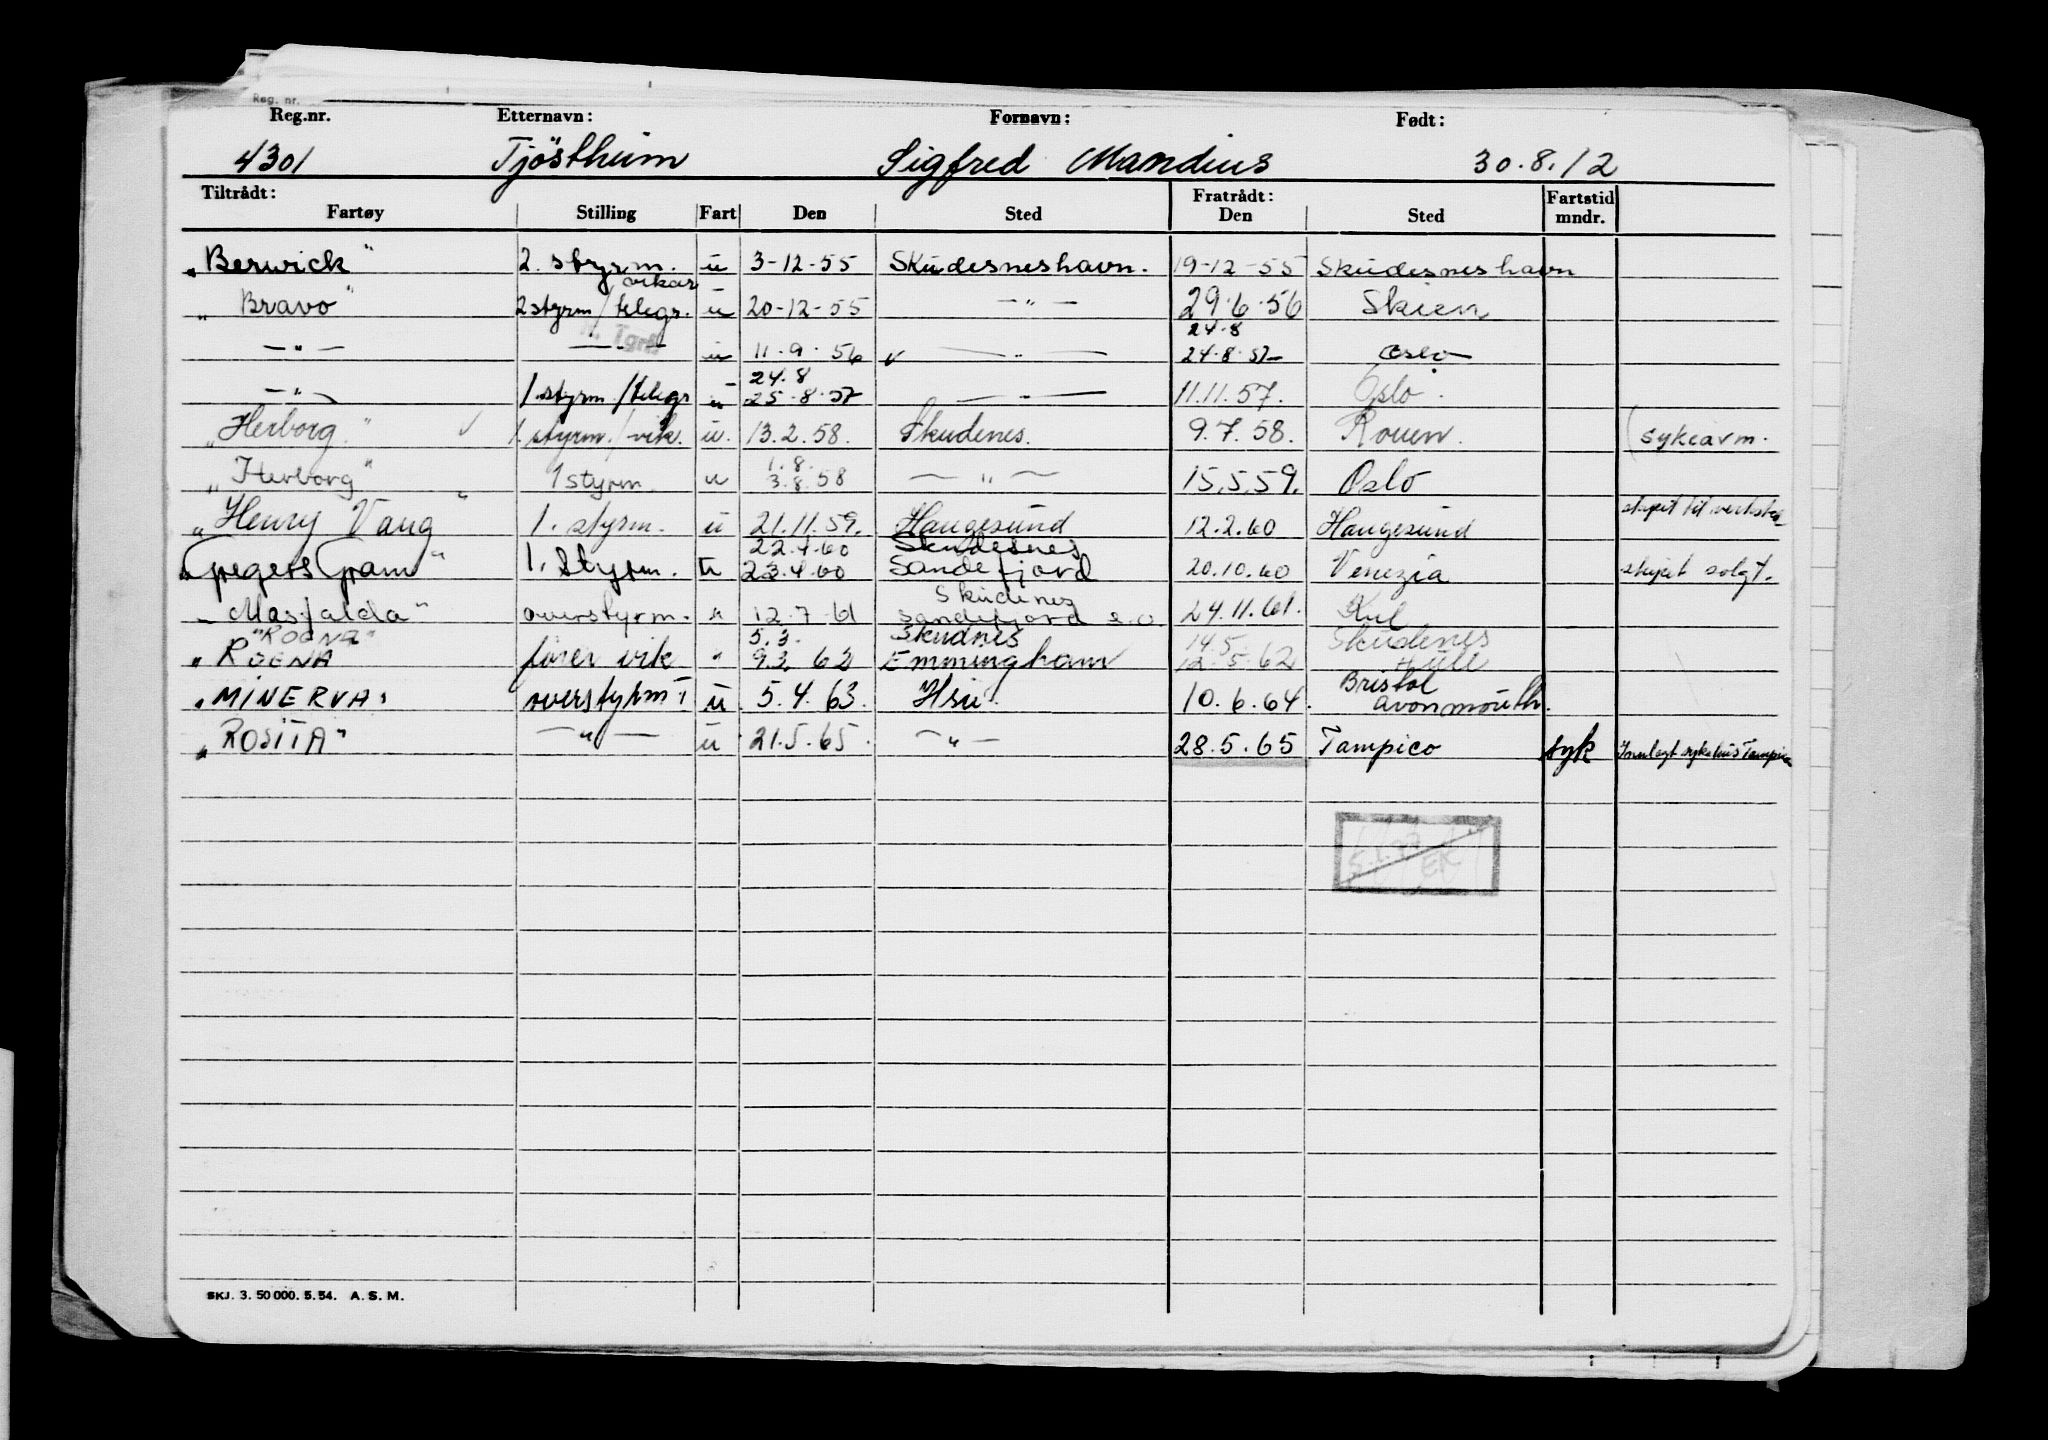 Reg. nr.
Reg.nr. Etternavn: Fornavn: Født:
4301 Tjöstheim Sigfred Mandius 30.8.12
Tiltrådt: Fratrådt: Fartstid
Fartøy Stilling Fart Den Sted Den Sted mndr.
"Berwick" 2. styrm. u 3-12-55 Skudesneshavn. 19-12-55 Skudesneshavn
vikar
"Bravo" 2styrm/telegr. u 20-12-55 — " — 29.6.56 Skien
Tgrf 24.8
— " — u 11.9.56 — " — 24.8.57 Oslo
24.8
— " — 1.styrm/telegr u 25.8.57 — " — 11.11.57. Oslo.
"Herborg." 1.styrm./vik. u. 13.2.58. Skudenes. 9.7.58. Rouen. (sykeavm.
1.8.
"Herborg" 1styrm. u 3.8.58 — " — 15.5.59. Oslo
"Henry Vang" 1. styrm. u 21.11.59. Haugesund 12.2.60 Haugesund skipet til
22.4.60 Skudesnes
"Gregers Gram" 1. Styrm. u 23.4.60 Sandefjord 20.10.60 Venezia skipet solgt.
Skudenes
"Masfalda" overstyrm. " 12.7.61 Sandefjord 24.11.61. Kiel
"ROENA" 5.3. Skudnes 14.5. Skudenes
"ROENA fører vik " 9.3 62 Emmingham 12.5.62 Hull
Bristol
"MINERVA" overstyrm. u 5.4.63. Hsu. 10.6.64. Avonmouth.
"ROSITA" — " — u 21.5.65. — " — 28.5.65 Tampico syk Innlagt sykehus Tampico
SKJ. 3. 50 000. 5. 54. A. S. M.